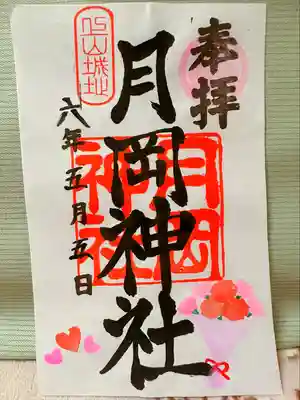 奉拝
月岡神社
月岡
神社
六年五月五日